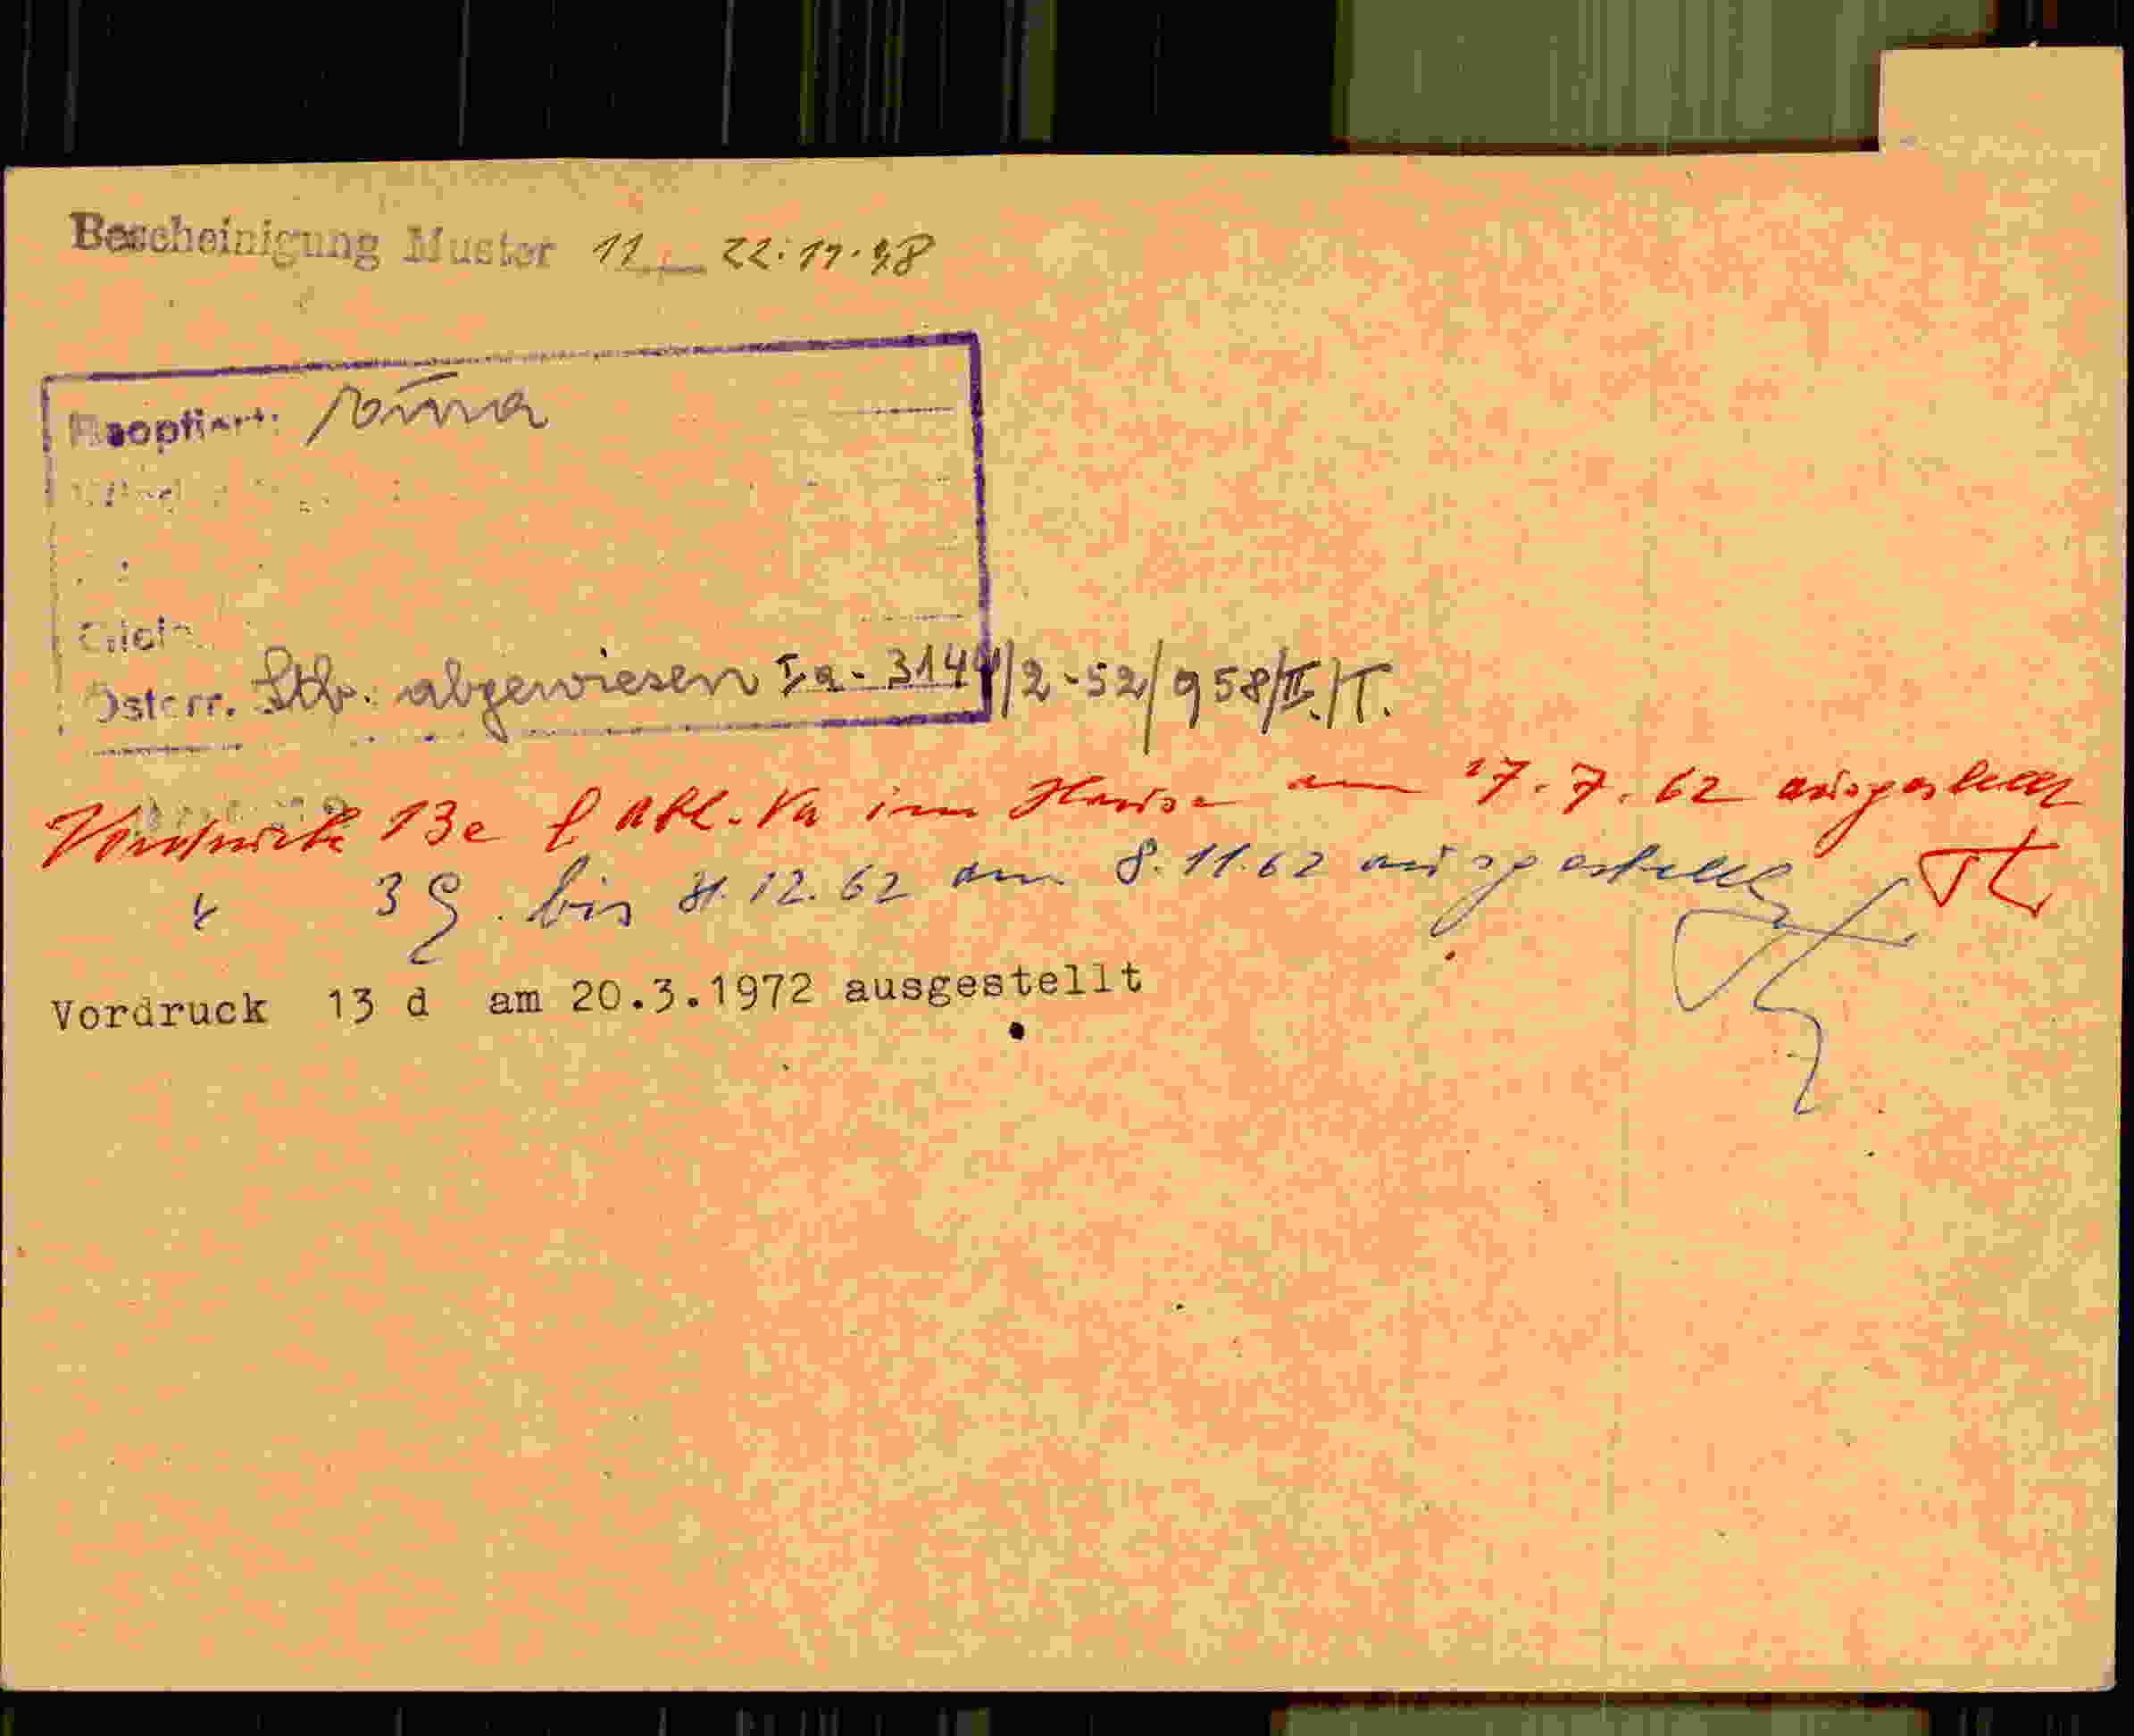 Bescheinigung Muster 11 22.11.48
Reoptiert:
Österr. Stb. abgewiesen Ia-3144/2-52/958/II./T.
Vordruck 13e f Abt. Va im Hause am 17.7.62 ausgestellt
" 3g. bis 31.12.62 am 8.11.62 ausgestellt
Vordruck 13 d am 20.3.1972 ausgestellt